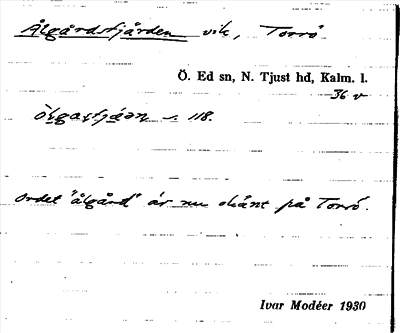 Ålgårdsfjärden vik, Torrö
Ö. Ed sn, N. Tjust hd, Kalm. l.
36 v
118.
Ordet "ålgård" är nu okänt på Torrö.
Ivar Modéer 1930